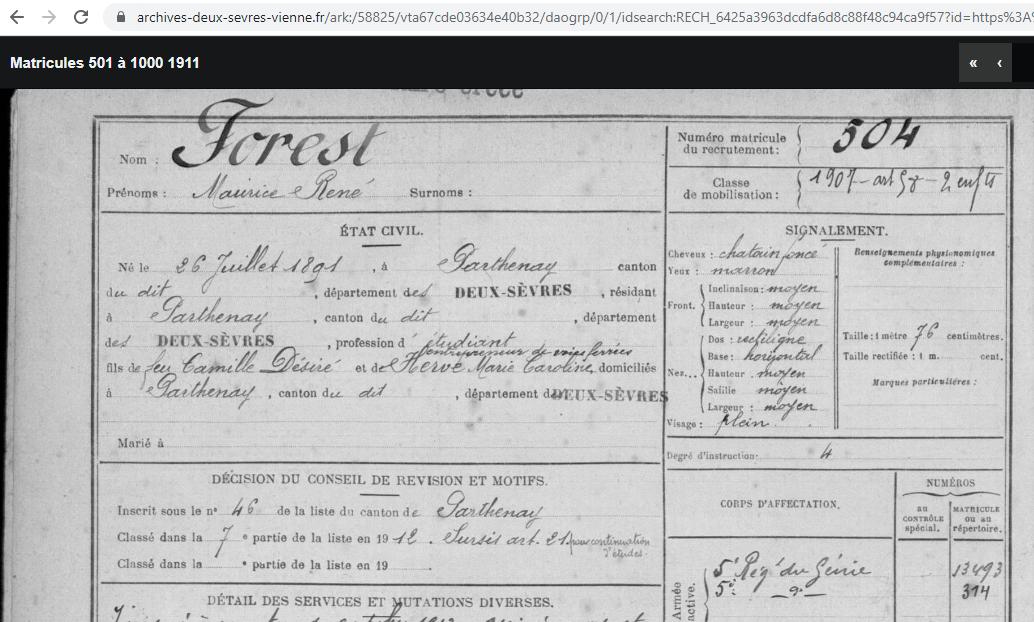 archives-deux-sevres-vienne.fr/ark:/58825/vta67cde03634e40b32/daogrp/0/1/idsearch:RECH_6425a3963dcdfa6d8c88f48c94ca9f57?id=https%3A%
Matricules 501 à 1000 1911
« ‹
Nom : Forest
Prénoms : Maurice René Surnoms :
Numéro matricule du recrutement : 504
Classe de mobilisation : 1907 - art 58 - 2 enfts
ÉTAT CIVIL.
Né le 26 Juillet 1891, à Parthenay canton
du dit, département des DEUX-SÈVRES, résidant
à Parthenay, canton du dit, département
des DEUX-SÈVRES, profession d'étudiant
entrepreneur de voies ferrées
fils de feu Camille Désiré et de Hervé Marie Caroline, domiciliés
à Parthenay, canton du dit, département des DEUX-SÈVRES
Marié à
SIGNALEMENT.
Cheveux : chatain foncé
Yeux : marron
Front. Inclinaison : moyen
Hauteur : moyen
Largeur : moyen
Nez... Dos : rectiligne
Base : horizontal
Hauteur : moyen
Saillie moyen
Largeur : moyen
Visage : plein
Renseignements physionomiques
complémentaires :
Taille : 1 mètre 76 centimètres.
Taille rectifiée : 1 m. cent.
Marques particulières :
Degré d'instruction : 4
DÉCISION DU CONSEIL DE REVISION ET MOTIFS.
Inscrit sous le n° 46 de la liste du canton de Parthenay
Classé dans la 7e partie de la liste en 1912. Sursis art. 21 pour continuation
d'études.
Classé dans la e partie de la liste en 19 .
DÉTAIL DES SERVICES ET MUTATIONS DIVERSES.
CORPS D'AFFECTATION.
NUMÉROS
au CONTRÔLE spécial.
MATRICULE ou au répertoire.
Armée active.
5e Régt du Génie 13493
5e 314